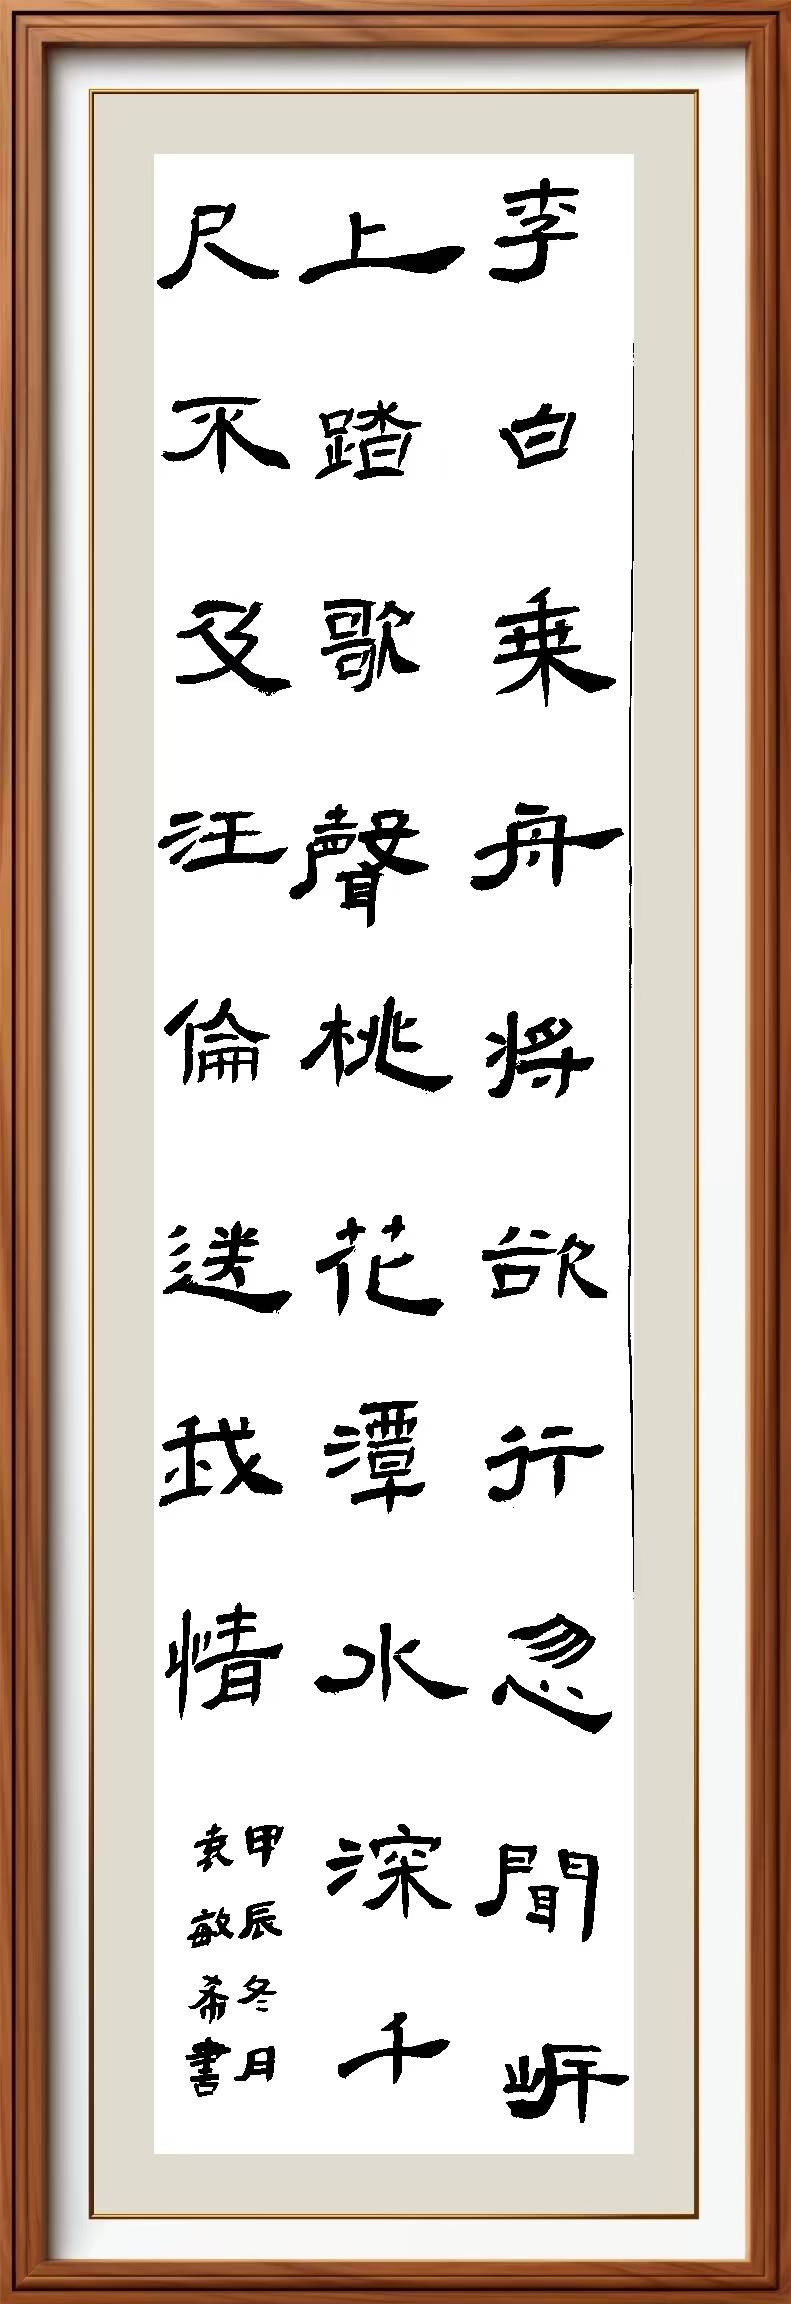 李白乗舟將欲行忽聞岍
上踏歌聲桃花潭水深千
尺不及汪倫送我情
甲辰冬月
袁敏希書